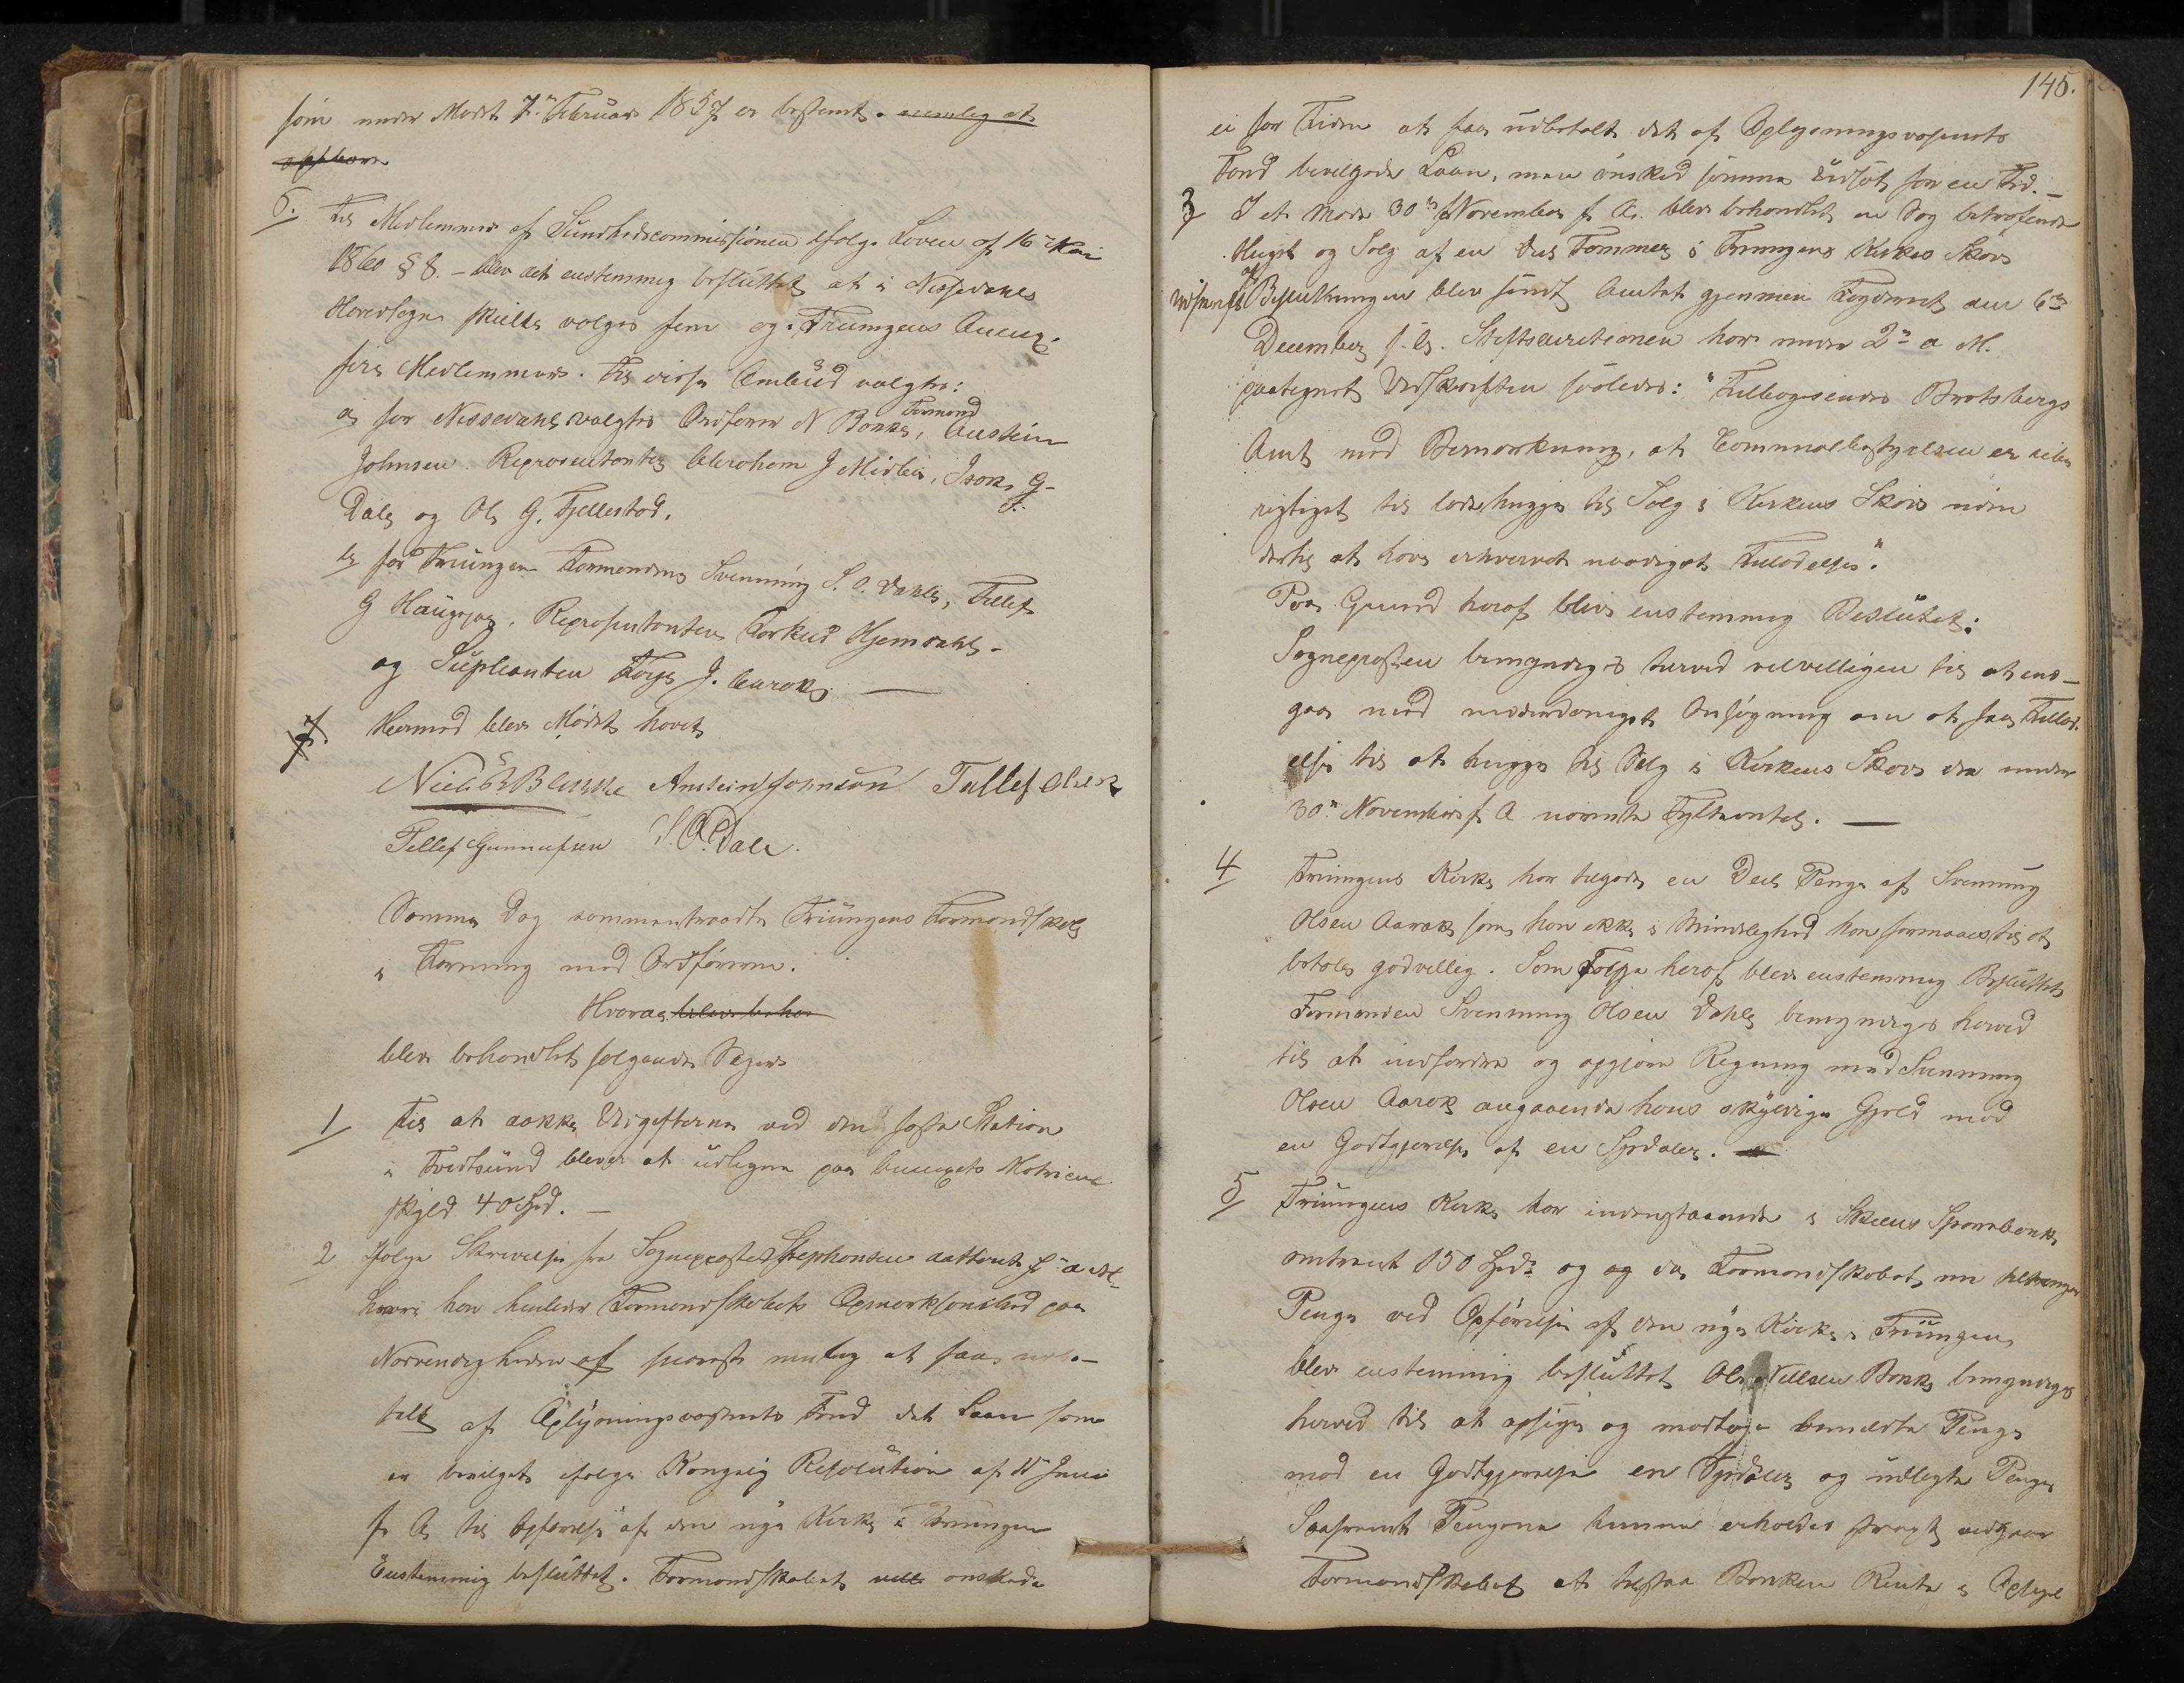 som under Mødet 7de Februar 1857 er bestemt. nemlig at
ophæve
6. Til Medlemmer af Sundhedscommissionen ifølge Loven af 16 Mai
1860 § 8. – blev det eenstemmig besluttet at i Nissedahls
Hovedsogn skulde vælges fem og i Treungens Annex
fire Medlemmer. Til disse Ombud valgtes:
a, for Nissedahl valgtes Ordfører N Bakke, Formand Austein
Johnsen. Repræsentanter Abraham J Midbø, Isak G.
Dale og Ole G. Fjellestad.
b, for Treungen Formændene Svenning S. O. Dahle, Tellef
G Haugsjaa, Repræsentanten Torkild Hjemdahl –
og Supleanten Torje J. Aarak. —
7. Hermed blev Mødet hævet
Niels O Bakke Austein Johnson Tellef Olsen
Tellef Gunnufsen S. O. Dale.
Samme Dag sammentraadte Treungens Formandskab
i Forening med Ordføreren.
Hvoraa blev beha
blev behandlet følgende Sager
1/ Til at dække Udgifterne ved den faste Station
i Tvedtsund bliver at udlignes paa Annexets Matricul
skyld 40 Spd. –
2 Ifølge Skrivelse fra Sogneprest Stephansen dateret f. a M.
hvori han henleder Formandskabets Opmærksomhed paa
Nødvendigheden af snarest mulig at faa udbe-
talt af Oplysningsvæsenets Fond det Laan som
er bevilget ifølge Kongelig Resolution af 11 Juni
f. A. til Opførelse af den nye Kirke i Treungen
Eenstemmig besluttet. Formandskabet vilde ønskede
145.
ei for Tiden at faa udbetalt det af Oplysningsvæsenets
Fond bevilgede Laan, men ønsked samme udsat for en Tid. –
3 I et Møde 30te November f. A. blev behandlet en Sag betræffende
Hugst og Salg af en Deel Tømmer i Treungens Kirkes Skov
Udskrift af Beslutningen blev sendt Amtet gjennem Fogderiet den 6te
December f. A. Stiftsdirectionen har under 2den a M.
paategnet Udskriften saaledes: "Tilbagesendes Bratsbergs
Amt med Bemærkning, at Communalbestyrelsen er ube
rigtiget til lade hugge til Salg i Kirkens Skov uden
dertil at have erhvervet naadigst Tilladelse".
Paa Grund heraf blev eenstemmig Besluttet:
Sogneprosten bemyndiges herved velvilligen til at ind-
gaa med underdanigst Ansøgning om at faa Tillad.
else til at hugge til Salg i Kirkens Skov den under
30te November f. A nævnte Tylvtantal. —
4/ Treungens Kirke har tilgode en Deel Penge af Svenning
Olsen Aarak som han ikke i Mindelighed kan formaaes til at
betale godvillig. Som Følge heraf blev eenstemmig Besluttet
Formanden Svenning Olsen Dahle bemyndiges herved
til at indfordre og opgjøre Regning med Svenning
Olsen Aarak angaaende hans skyldige Gjeld mod
en Godtgjørelse af en Spdaler. —
5/ Treungens Kirke har indestaaende i Skiens Sparebank
omtrent 150 Spd. og og da Formandskabet nu tiltrenger
Penge ved Opførelse af den nye Kirke i Treungen,
blev eenstemmig besluttet Ole Nielsen Bakke bemyndiges
herved til at opsige og modtage bemeldte Penge
mod en Godtgjørelse en Spdaler og udlegte Penge
Saafremt Pengene kunne erholdes strags vedgaar
Formandskabet at tilstaa Banken Rente i Opsigel